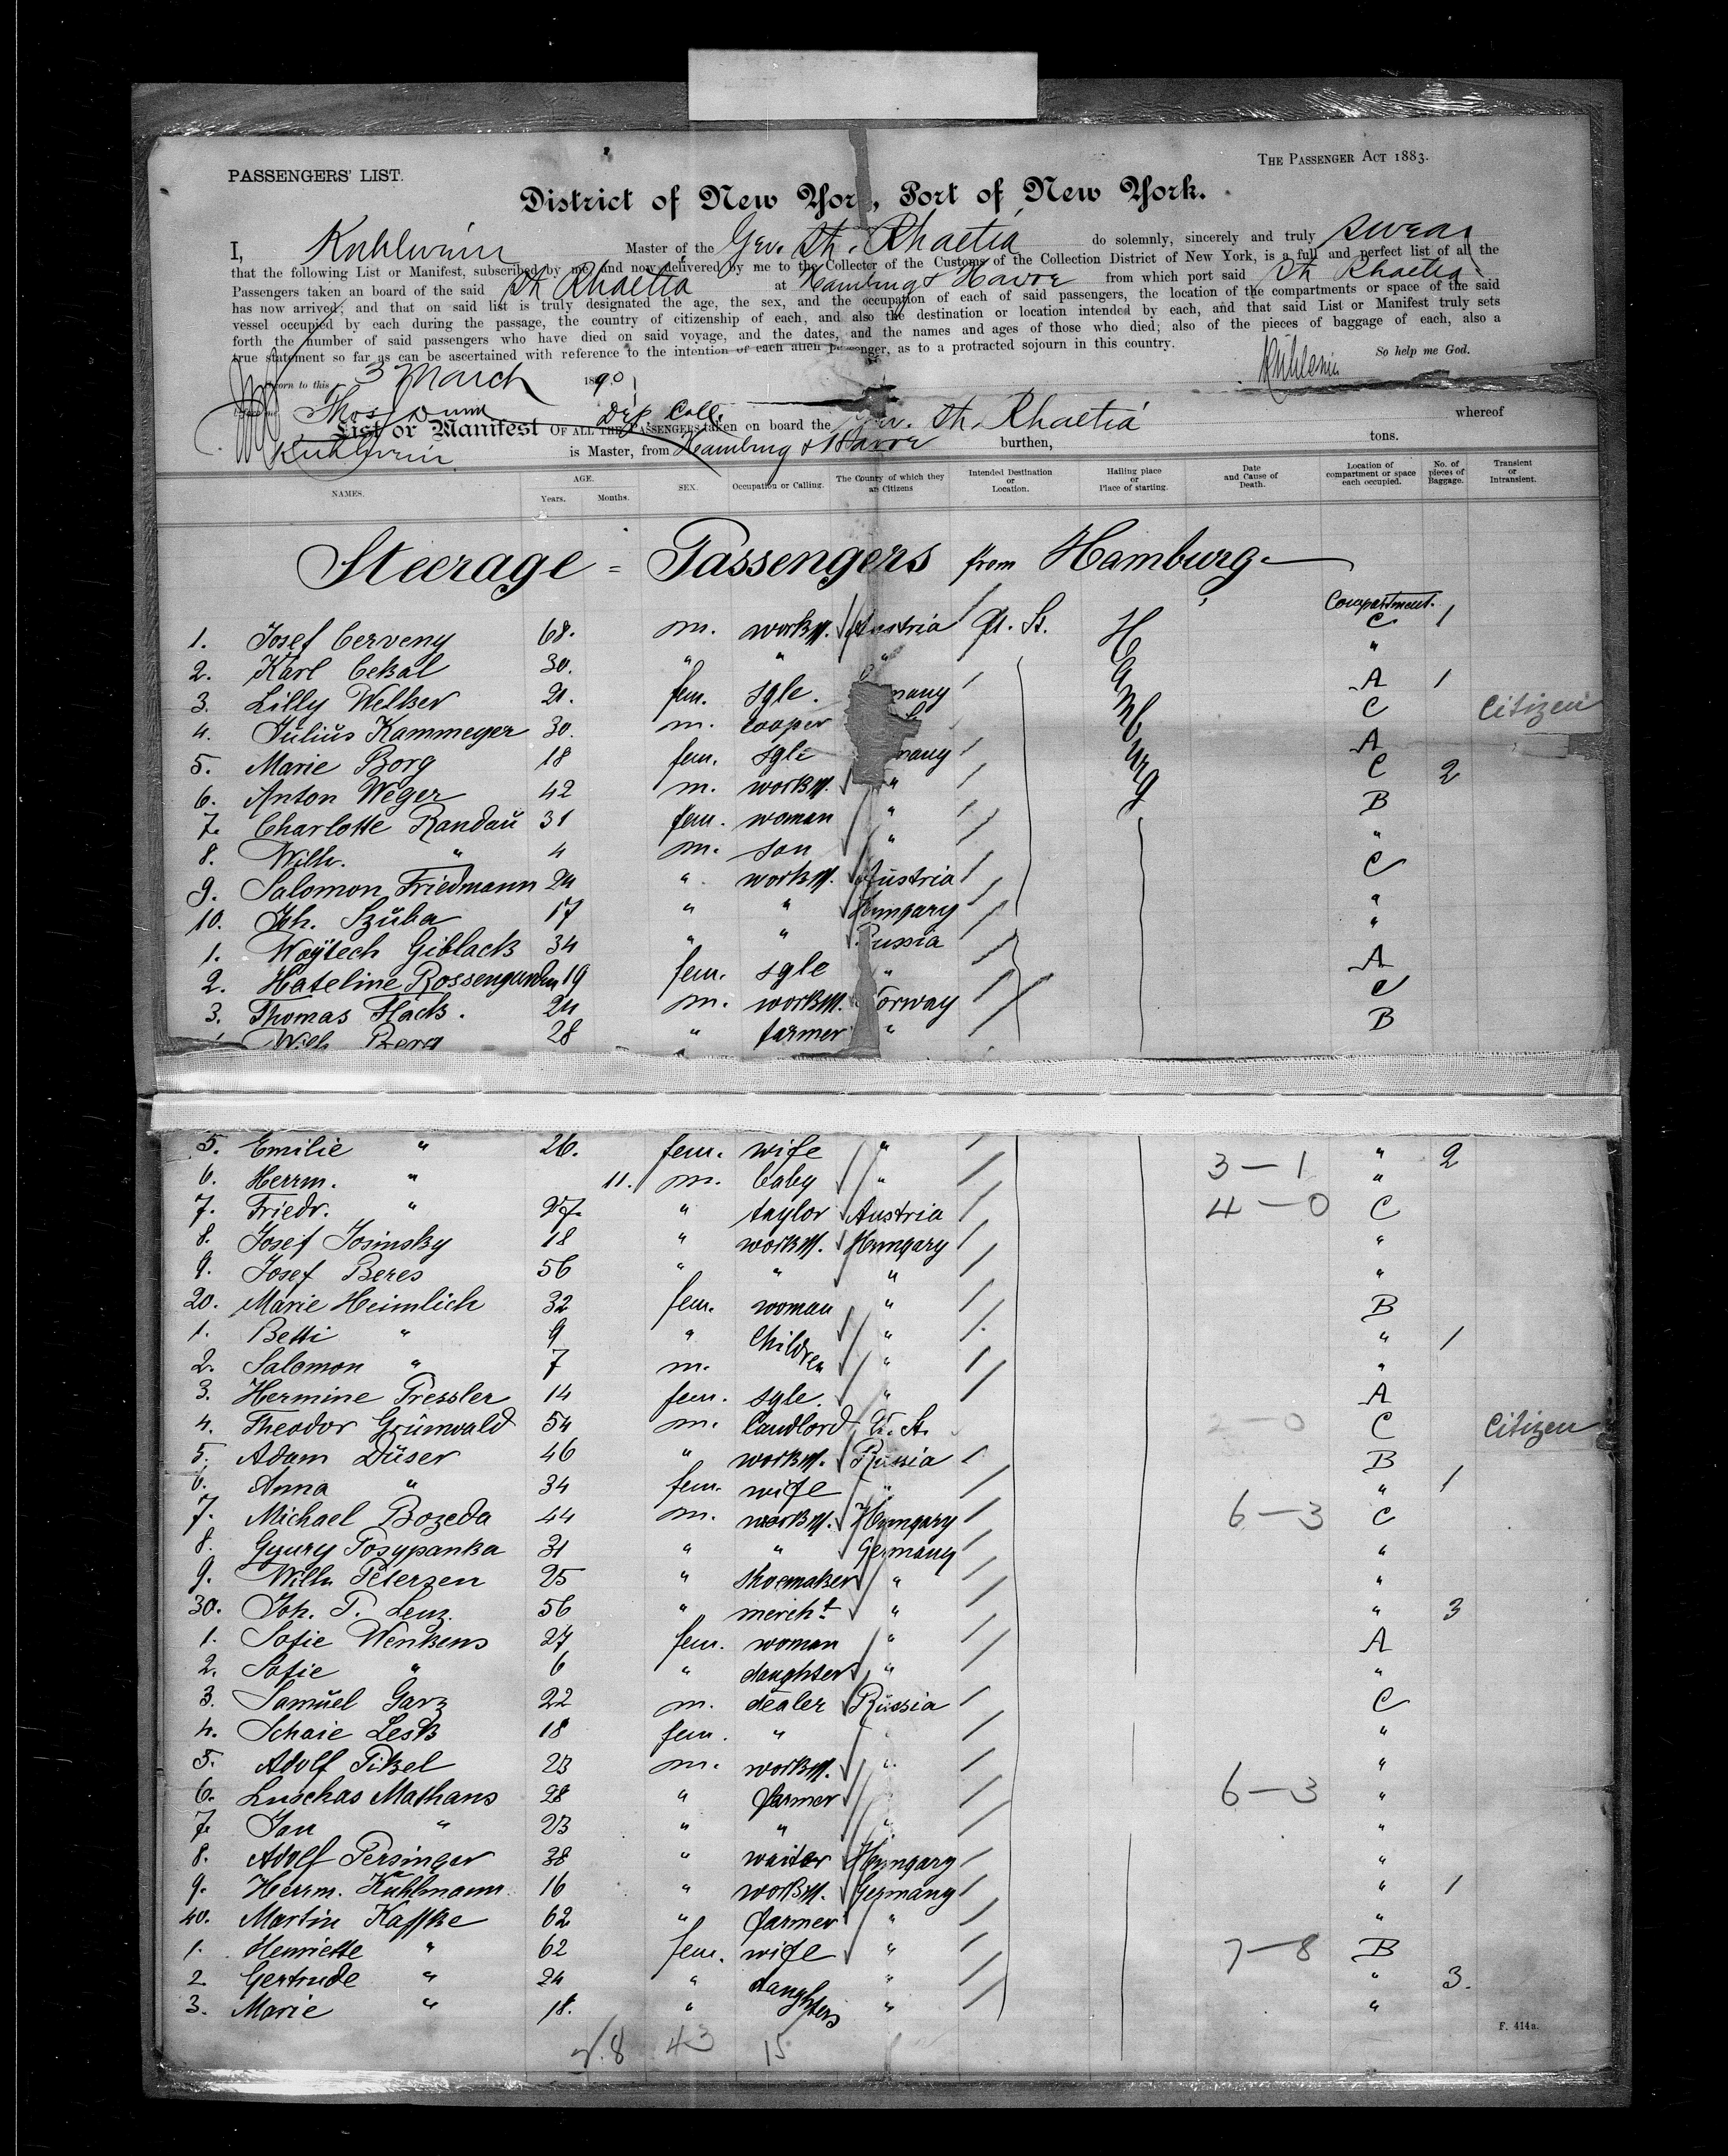 PASSENGERS' LIST.
THE PASSENGER ACT 1883.
District of New Yor, Port of New York.
I, Kuhlwein Master of the Ger. St. Rhaetia do solemnly, sincerely and truly swear
that the following List or Manifest, subscribed by me and now delivered by me to the Collector of the Customs of the Collection District of New York, is a full and perfect list of all the
Passengers taken an board of the said St Rhaetia at Hamburg & Havre from which port said St Rhaetia
has now arrived; and that on said list is truly designated the age, the sex, and the occupation of each of said passengers, the location of the compartments or space of the said
vessel occupied by each during the passage, the country of citizenship of each, and also the destination or location intended by each, and that said List or Manifest truly sets
forth the number of said passengers who have died on said voyage, and the dates, and the names and ages of those who died; also of the pieces of baggage of each, also a
true statement so far as can be ascertained with reference to the intention of each alien passenger, as to a protracted sojourn in this country.
So help me God.
Kuhlwein
Sworn to this 3 March 1890
Thos Dunn Dep. Coll.
List or Manifest OF ALL THE PASSENGERS taken on board the Ger. St. Rhaetia whereof
Kuhlwein is Master, from Hamburg & Havre burthen, tons.
NAMES. AGE. Years. Months. SEX. Occupation or Calling. The County of which they an Citizens Intended Destination or Location. Hailing place or Place of starting. Date and Cause of Death. Location of compartment or space each occupied. No. of pieces of Baggage. Transient or Intransient.
Steerage = Passengers from Hamburg
Compartment.
1. Josef Cerveny 68. m. workm. Austria U. St. C 1
2. Karl Cekal 30. " " " "
3. Lilly Welker 21. fem. sgle. many A 1
4. Julius Kammeyer 30. m. cooper C Citizen
5. Marie Borg 18 fem. sgle many A
6. Anton Weger 42 m. workm. " C 2
7. Charlotte Randau 31 fem. woman " B
8. Wilh. " 4 m. son " "
9. Salomon Friedmann 24 " workm. Austria C
10. Joh. Szuba 17 " " Hungary "
1. Woytech Giblack 34 " " Russia "
2. Hateline Rossengunden 19 fem. sgle " A
3. Thomas Hack. 24 m. workm. Norway C
Wilh. Berg 28 " farmer " B
Hamburg
5. Emilie " 26. fem. wife " " 2
6. Herrm. " 11. m. baby " 3-1 "
7. Friedr. " 27. " taylor Austria 4-0 C
8. Josef Josinsky 18 " workm. Hungary "
9. Josef Beres 56 " " " "
20. Marie Heimlich 32 fem. woman " B
1. Betti " 9 " Children " " 1
2. Salomon " 7 m. " "
3. Hermine Pressler 14 fem. sgle. " A
4. Theodor Grünwald 54 m. landlord U. St. 2 0 C Citizen
5. Adam Düser 46 " workm. Russia B
6. Anna " 34 fem. wife " " 1
7. Michael Bozeda 44 m. workm. Hungary 6-3 C
8. Gyury Posypanka 31 " " Germany "
9. Wilh. Petersen 25 " shoemaker " "
30. Joh. P. Lenz. 56 " mercht " " 3
1. Sofie Wenkens 27 fem. woman " A
2. Sofie " 6 " daughter " "
3. Samuel Garz 22 m. dealer Russia C
4. Schaie Lesk 18 fem. " " "
5. Adolf Pikel 23 m. workm. " "
6. Luschas Mathans 28 " farmer " 6-3 "
7. Jan " 23 " " " "
8. Adolf Persinger 38 " waiter Hungary "
9. Herrm. Kuhlmann 16 " workm. Germany " 1
40. Martin Kaffke 62 " farmer " "
1. Henriette " 62 fem. wife " 7-8 B
2. Gertrude " 24 " daughters " " 3.
3. Marie " 18. " " "
F. 414a.
43 15